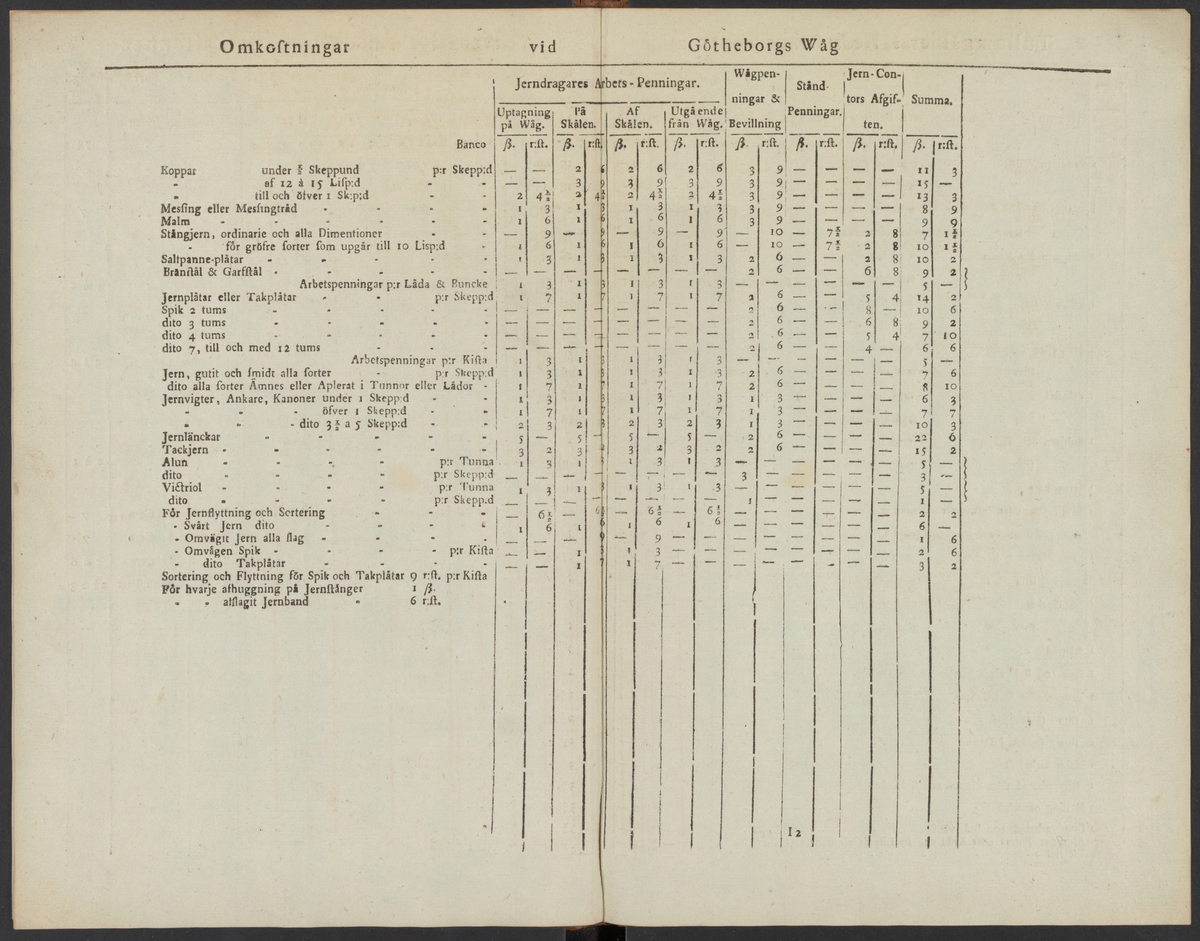 Omkoſtningar vid Götheborgs Wåg
Jerndragares Arbets-Penningar. Wågpen- Stånd- Jern-Con- Summa.
Uptagning På Af Utgående ningar & Penningar. tors Afgif-
på Wåg. Skålen. Skålen. från Wåg. Bevillning ten.
Banco ß. r:ſt. ß. r:ſt. ß. r:ſt. ß. r:ſt. ß. r:ſt. ß. r:ſt. ß. r:ſt. ß. r:ſt.
Koppar under ½ Skeppund p:r Skepp:d — — 2 6 2 6 2 6 3 9 — — — — 11 3
" af 12 à 15 Liſp:d - - — — 3 9 3 9 3 9 3 9 — — — — 15 —
" till och öfver 1 Sk:p:d - - 2 4½ 2 4½ 2 4½ 2 4½ 3 9 — — — — 13 3
Mesſing eller Mesſingtråd - - - - 1 3 1 3 1 3 1 3 3 9 — — — — 8 9
Malm - - - - - - 1 6 1 6 1 6 1 6 3 9 — — — — 9 9
Stångjern, ordinarie och alla Dimentioner - - - — 9 — 9 — 9 — 9 — 10 — 7½ 2 8 7 1½
- för gröfre ſorter ſom upgår till 10 Lisp:d - - 1 6 1 6 1 6 1 6 — 10 — 7½ 2 8 10 1½
Saltpanne-plåtar - - - - - 1 3 1 3 1 3 1 3 2 6 — — 2 8 10 2
Brånſtål & Garfſtål - - - - - - — — — — — — — — 2 6 — — 6 8 9 2
Arbetspenningar p:r Låda & Buncke 1 3 1 3 1 3 1 3 — — — — — — 5 —
Jernplåtar eller Takplåtar - - p:r Skepp:d 1 7 1 7 1 7 1 7 2 6 — — 5 4 14 2
Spik 2 tums - - - - - — — — — — — — — 2 6 — — 8 — 10 6
dito 3 tums - - - - - — — — — — — — — 2 6 — — 6 8 9 2
dito 4 tums - - - - - — — — — — — — — 2 6 — — 5 4 7 10
dito 7, till och med 12 tums - - - - — — — — — — — — 2 6 — — 4 — 6 6
Arbetspenningar p:r Kiſta 1 3 1 3 1 3 1 3 — — — — — — 5 —
Jern, gutit och ſmidt alla ſorter - p:r Skepp:d 1 3 1 3 1 3 1 3 2 6 — — — — 7 6
dito alla ſorter Ämnes eller Aplerat i Tunnor eller Lådor - 1 7 1 7 1 7 1 7 2 6 — — — — 8 10
Jernvigter, Ankare, Kanoner under 1 Skepp:d - - 1 3 1 3 1 3 1 3 1 3 — — — — 6 3
" " - öfver 1 Skepp:d - - 1 7 1 7 1 7 1 7 1 3 — — — — 7 7
" " - dito 3½ a 5 Skepp:d - - 2 3 2 3 2 3 2 3 1 3 — — — — 10 3
Jernlänckar - - - - - 5 — 5 — 5 — 5 — 2 6 — — — — 22 6
Tackjern - - - - - - 3 2 3 2 3 2 3 2 2 6 — — — — 15 2
Alun - - - - p:r Tunna 1 3 1 3 1 3 1 3 — — — — — — 5 —
dito - - - - p:r Skepp:d — — — — — — — — 3 — — — — — 3 —
Victriol - - - - p:r Tunna 1 3 1 3 1 3 1 3 — — — — — — 5 —
dito - - - - p:r Skepp:d — — — — — — — — 1 — — — — — 1 —
För Jernflyttning och Sortering - - - — 6½ — 6½ — 6½ — 6½ — — — — — — 2 2
- Svårt Jern dito - - - 1 6 1 6 1 6 1 6 — — — — — — 6 —
- Omvägit Jern alla ſlag - - - - — — — 9 — 9 — — — — — — — — 1 6
- Omvägen Spik - - - - p:r Kiſta — — 1 3 1 3 — — — — — — — — 2 6
- dito Takplåtar - - - - — — 1 7 1 7 — — — — — — — — 3 2
Sortering och Flyttning för Spik och Takplåtar 9 r:ſt. p:r Kiſta
För hvarje afhuggning på Jernſtånger 1 ß.
" " afſlagit Jernband " 6 r:ſt.
I 2